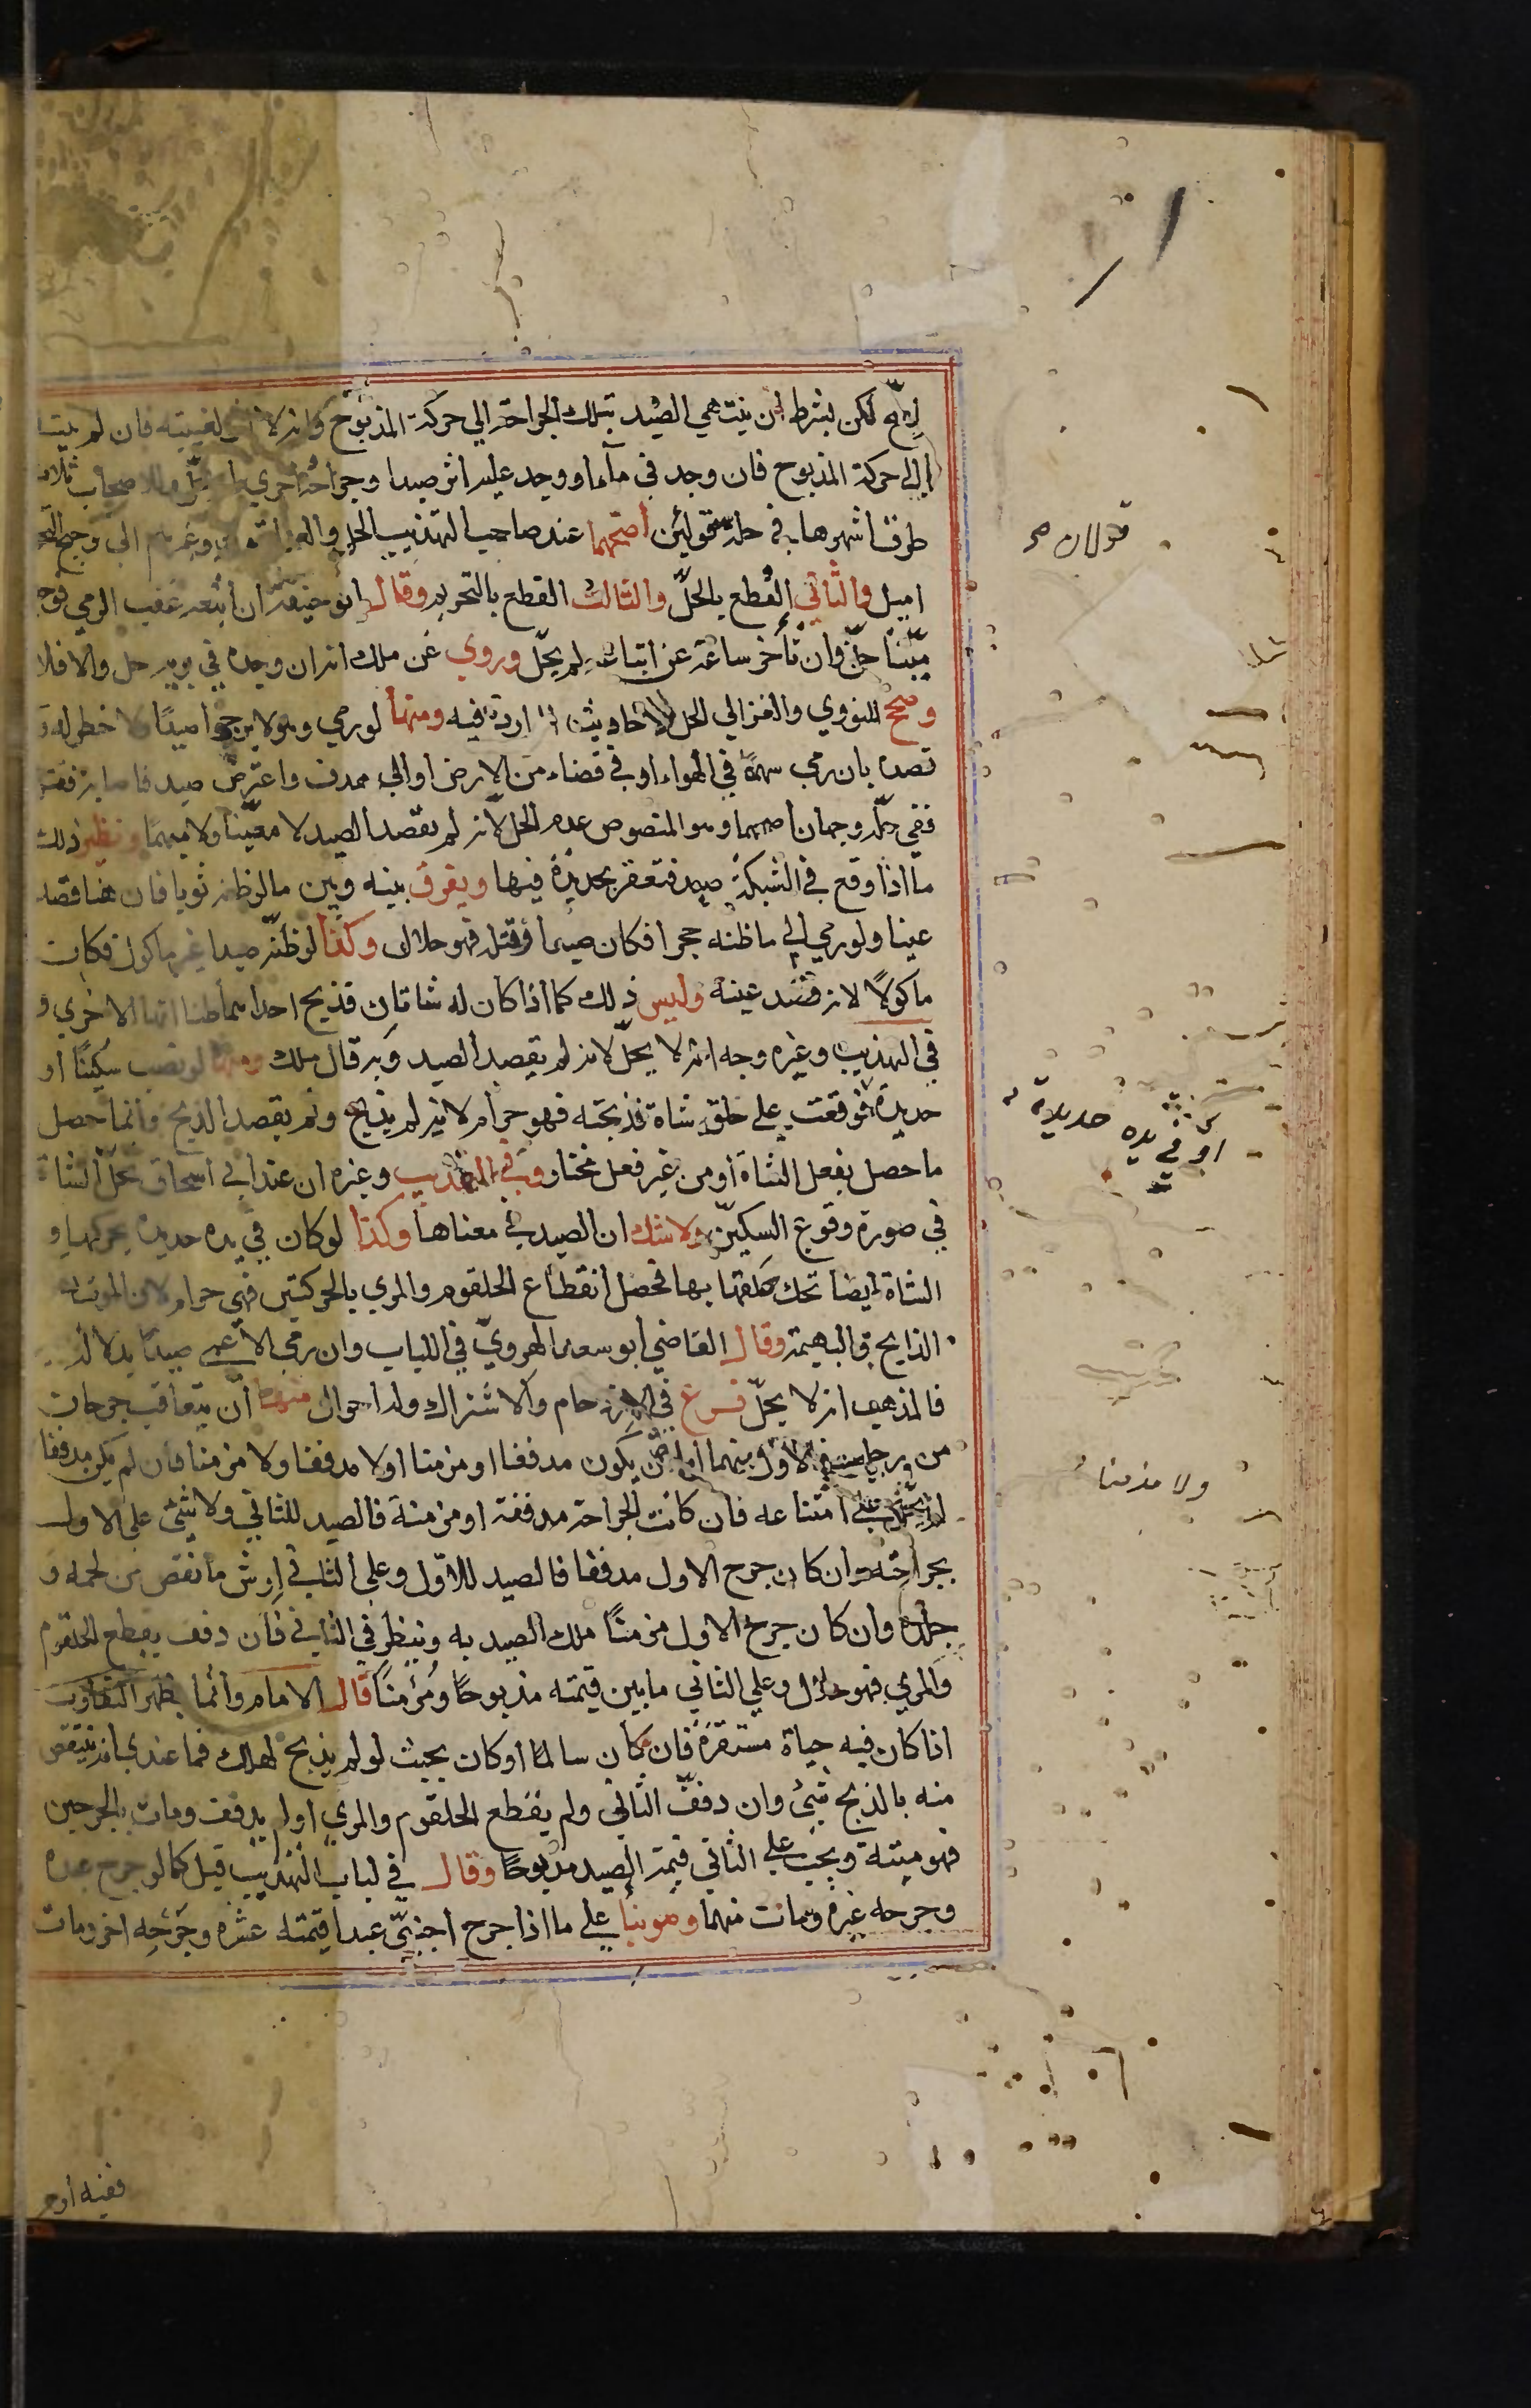 لكن بشرط ان ينتهي الصيد بتلك الجراحة الي حركة المذبوح وانه لا لغيبته فان لم ينته
الي حركة المذبوح فان وجد في مآء او وجد عليه اثر صيد او جراحة اخري وللاصحاب ثلاث
طرق اشهرها في حله قولين اصحهما عند صاحب التهذيب الحل والعراقيون وغيرهم الي ترجيح
اميل والثاني القطع بالحل والثالث القطع بالتحريم وقال ابو حنيفة ان اتبعه عقب الرمي فوجده
ميتا حل وان تأخر ساعة عن اتباعه لم يحل وروي عن ملك انه ان وجده في يومه حل والا فلا
وصحح النووي والغزالي الحل للاحاديث الواردة فيه ومنها لو رمي وهو لا يرجوا صيدا ولا خطر له و
قصده بان رمي سهما في الهواء او في فضاء من الارض او الي هدف واعترض صيد فاصابه فقتله
ففي حله وجهان اصحهما وهو المنصوص عدم الحل لانه لم يقصد الصيد لا معينا ولا مبهما ونظير ذلك
ما اذا وقع في الشبكة صيد فتعقر بحديدة فيها ويفرق بينه وبين ما لو ظنه ثوبا فان هنا قصد
عينا ولو رمي الي ما ظنه حجرا فكان صيدا فقتله فهو حلال وكذا لو ظنه صيدا غير ماكول فكان
ماكولا لانه قصد عينه وليس ذلك كما اذا كان له شاتان فذبح احداهما ظنا انها الاخري و
في التهذيب وغيره وجه انه لا يحل لانه لم يقصد الصيد وبه قال ملك ومنها لو نصب سكينا او
حديدة فوقعت علي حلق شاة فذبحته فهو حرام لانه لم يذبح ولم يقصد الذبح وانما حصل
ما حصل بفعل الشاة او من غير فعل مختار وفي التهذيب وغيره ان عند ابي اسحاق يحل الشاة
في صورة وقوع السكين ولا شك ان الصيد في معناها وكذا لو كان في يده حديدة يحركها و
الشاة ايضا تحك حلقها بها فحصل انقطاع الحلقوم والمري بالحركتين فهي حرام لان الموت
الذابح والبهيمة وقال القاضي ابو سعد الهروي في اللباب وان رمي الاعمي صيدا بدلالة
فالمذهب انه لا يحل فرع في الازدحام والاشتراك وله احوال منها ان يتعاقب جرحان
من رجلين فالاول بينهما اما ان يكون مدففا او مزمنا او لا مدففا ولا مزمنا فان لم يكن مدففا
علي امتناعه فان كانت الجراحة مدففة او مزمنة فالصيد للثاني ولا شئ علي الاول
بجراحته وان كان جرح الاول مدففا فالصيد للاول وعلي الثاني ارش ما نقص من لحمه و
جلده وان كان جرح الاول مزمنا ملك الصيد به وينظر في الثاني فان دفف بقطع الحلقوم
والمري فهو حلال وعلي الثاني ما بين قيمته مذبوحا ومزمنا قال الامام وانما يظهر التفاوت
اذا كان فيه حياة مستقرة فان كان سالما او كان بحيث لو لم يذبح لهلك فما عندي انه ينقص
منه بالذبح شئ وان دفف الثاني ولم يقطع الحلقوم والمري او لم يدفف ومات بالجرحين
فهو ميتة ويجب علي الثاني قيمة الصيد مذبوحا وقال في لباب التهذيب قيل كما لو جرح عبده
وجرحه غيره ومات منهما وهو بناء علي ما اذا جرح اجنبي عبدا قيمته عشرة وجرحه اخر ومات
قولان صح
او في يده حديدة
ولا مزمنا
ففيه اوجه